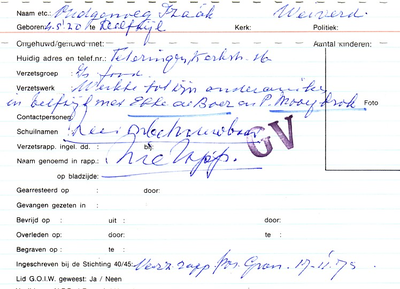 Naam etc.: Oudgenoeg Izaäk Weiwerd
Geboren: 4.5.20 te Delfzijl Kerk: Politiek:
Ongehuwd/gehuwd met: Aantal kinderen:
Huidig adres en telef.nr.: Teteringen, Kerkstr. 16
Verzetsgroep :
Verzetswerk : Werkte tot zijn onderduiken
in Delfzijl met Ebke de Boer en P. Mooybroek Foto
Contactpersonen:
Schuilnamen :
Verzetsrapp. ingel. dd. : bij:
Naam genoemd in rapp.: Zie rapp.
GV
op bladzijde:
Gearresteerd op : door:
Gevangen gezeten in :
Bevrijd op : uit : door:
Overleden op: door: te :
Begraven op : te :
Ingeschreven bij de Stichting 40/45: Verz. rapp. Gron. 17-11-'75
Lid G.O.I.W. geweest: Ja / Neen